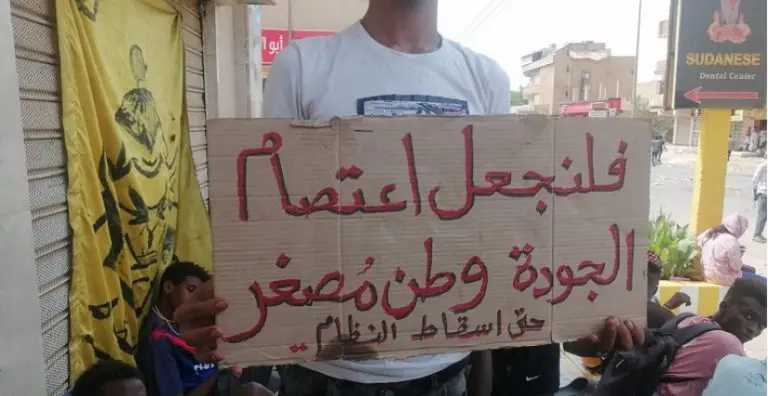 أبوا
SUDANESE
Dental Center
فلنجعل اعتصام
الجودة وطن مُصغر
حتى اسقاط النظام